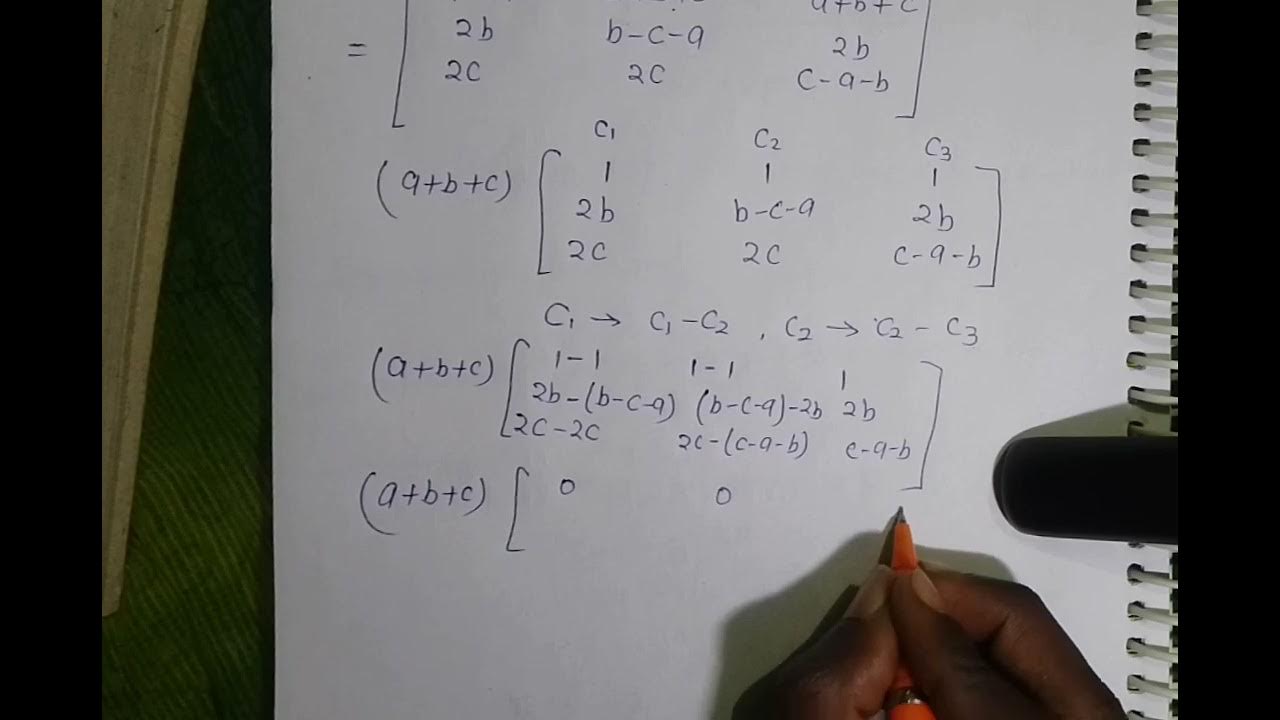 a+b+c
= [ 2b b-c-a 2b
2c 2c c-a-b ]
C1 C2 C3
(a+b+c) [ 1 1 1
2b b-c-a 2b
2c 2c c-a-b ]
C1 → C1-C2 , C2 → C2 - C3
(a+b+c) [ 1-1 1-1 1
2b-(b-c-a) (b-c-a)-2b 2b
2c-2c 2c-(c-a-b) c-a-b ]
(a+b+c) [ 0 0